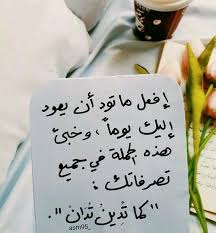 إفعل ما تود أن يعود
إليك يوماً ، وخبئ
هذه الجملة في جميع
تصرفاتك :
"كما تدين تدان".
asm95_